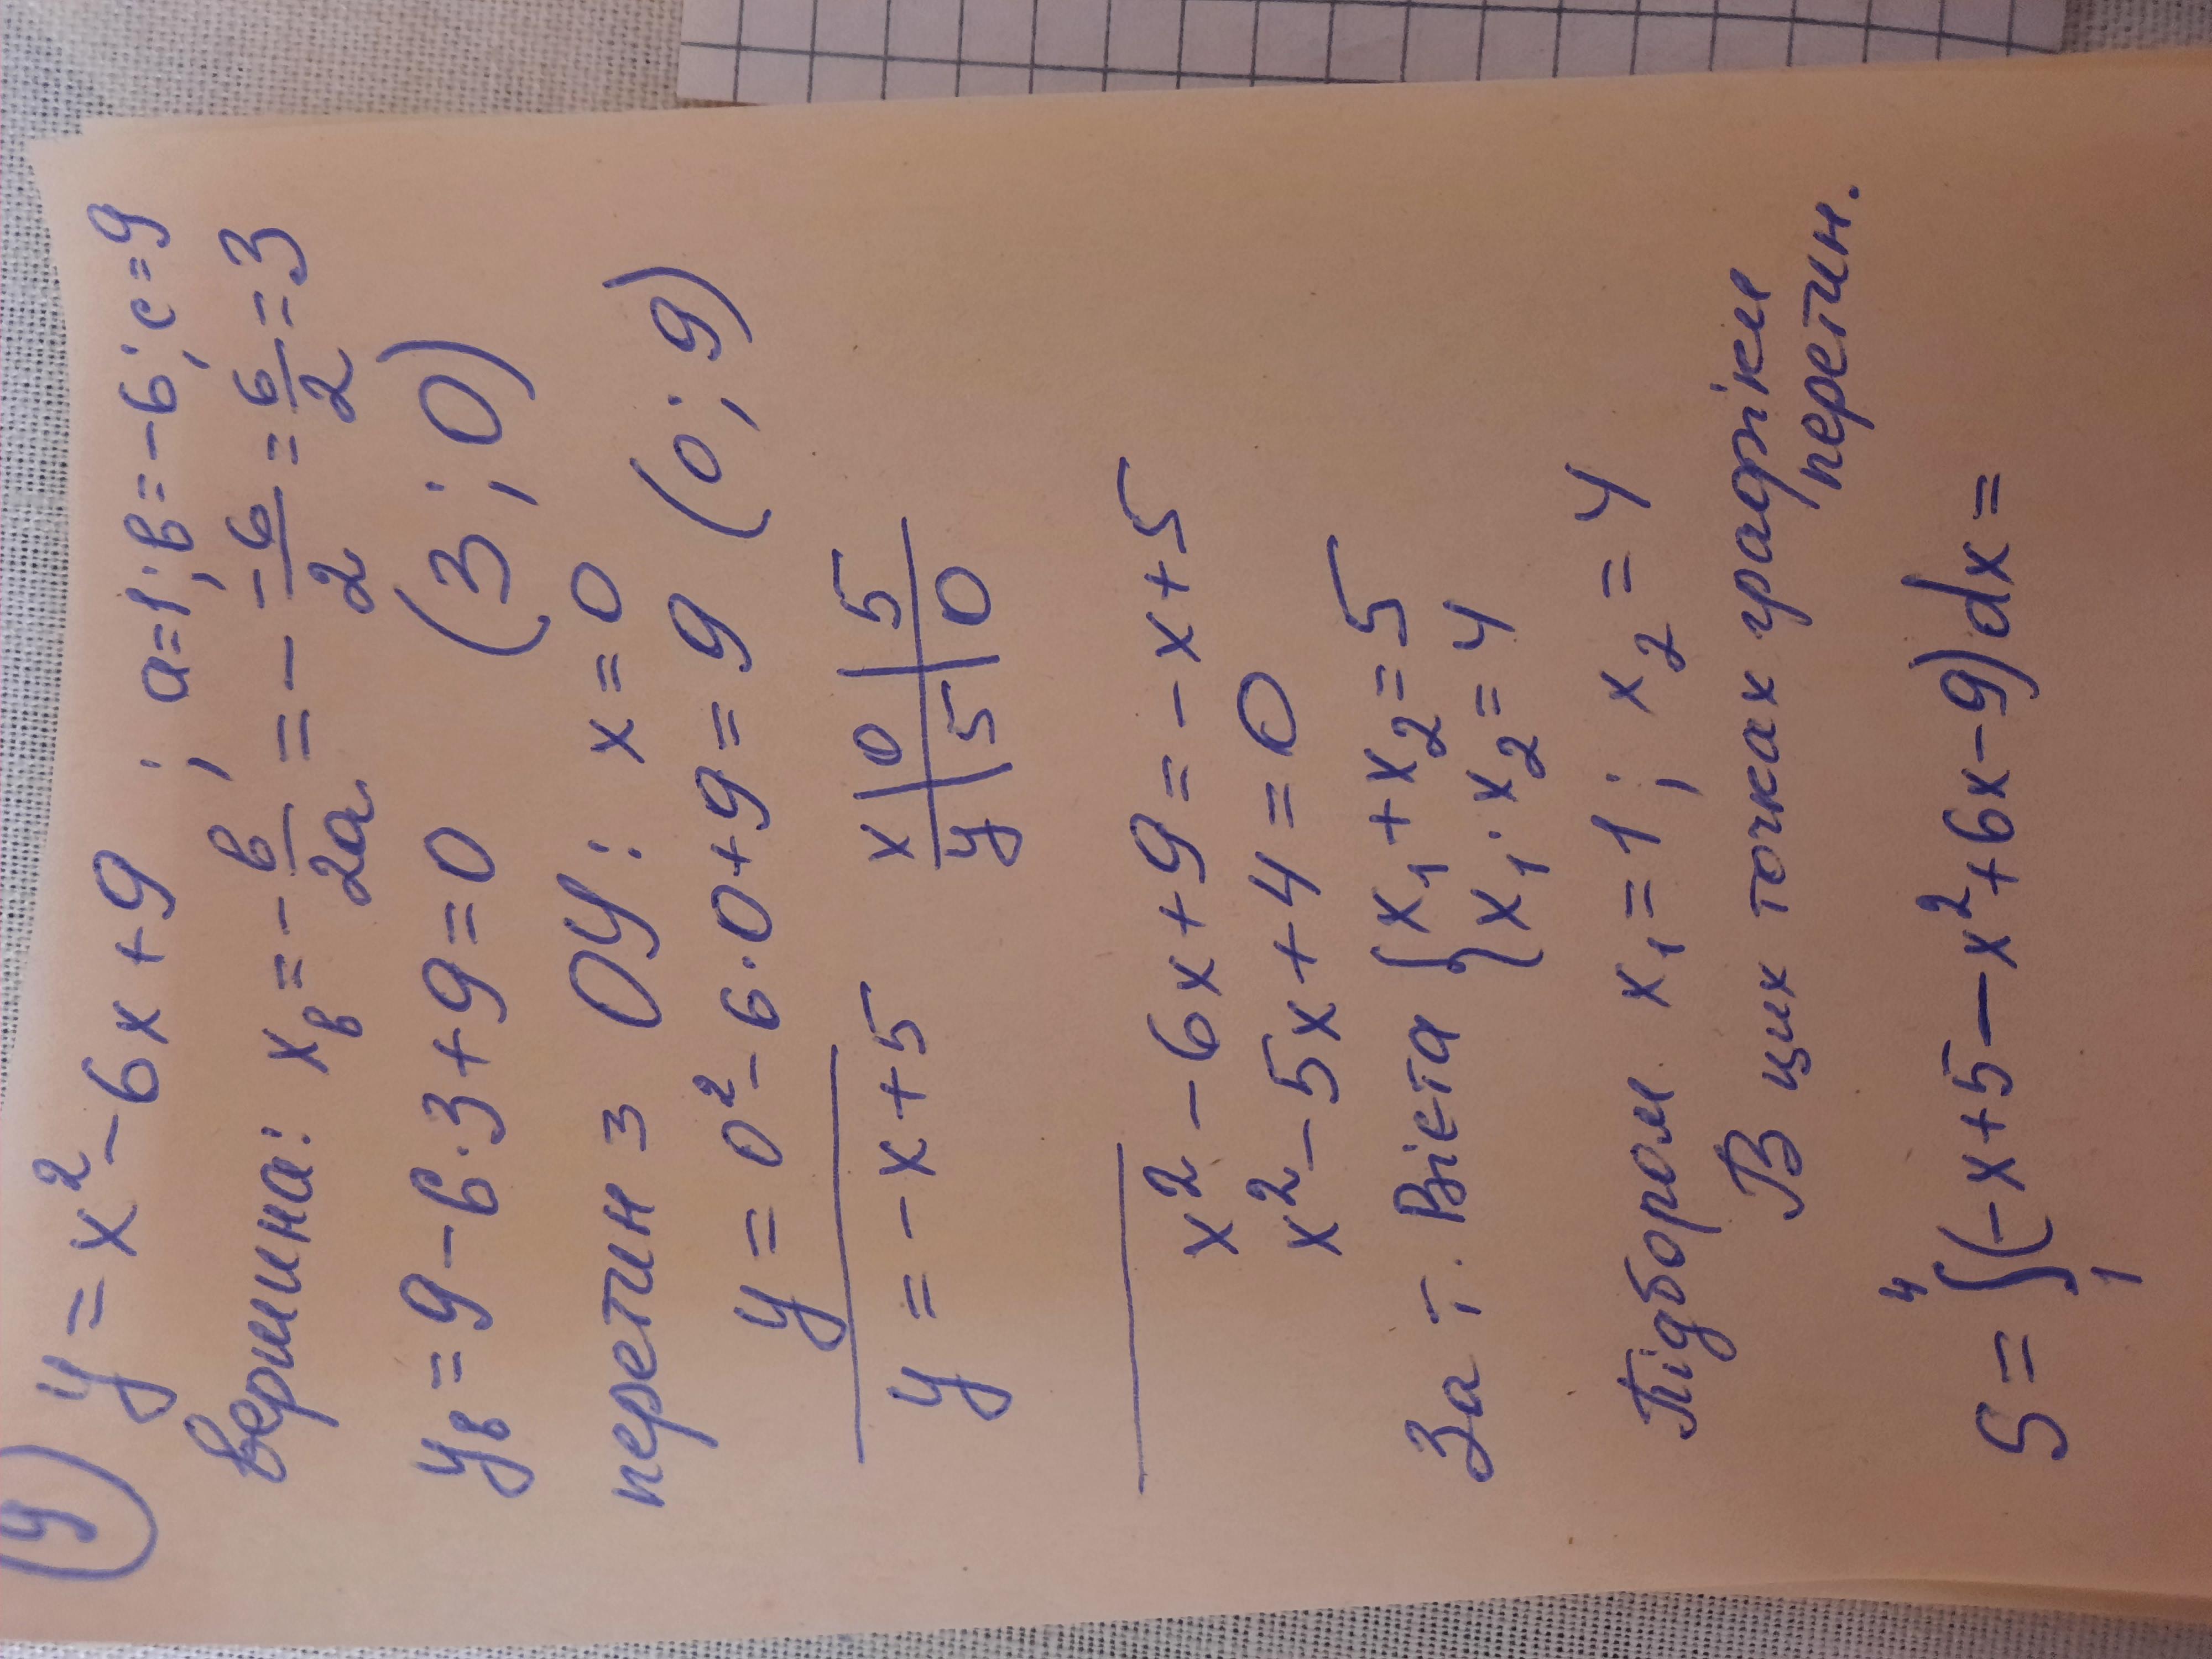 9) y = x² - 6x + 9 ; a=1; в=-6; c=9
вершина: xв = - в/2a = - -6/2 = 6/2 = 3
yв = 9 - 6·3 + 9 = 0 (3 ; 0)
перетин з OY: x = 0
y = 0² - 6·0 + 9 = 9 (0 ; 9)
y = -x + 5 x | 0 | 5
y | 5 | 0
x² - 6x + 9 = -x + 5
x² - 5x + 4 = 0
За т. Вієта { x₁ + x₂ = 5
x₁ · x₂ = 4
Підбором x₁ = 1 ; x₂ = 4
В цих точках графіки
перетин.
S = ∫₁⁴ (-x + 5 - x² + 6x - 9) dx =